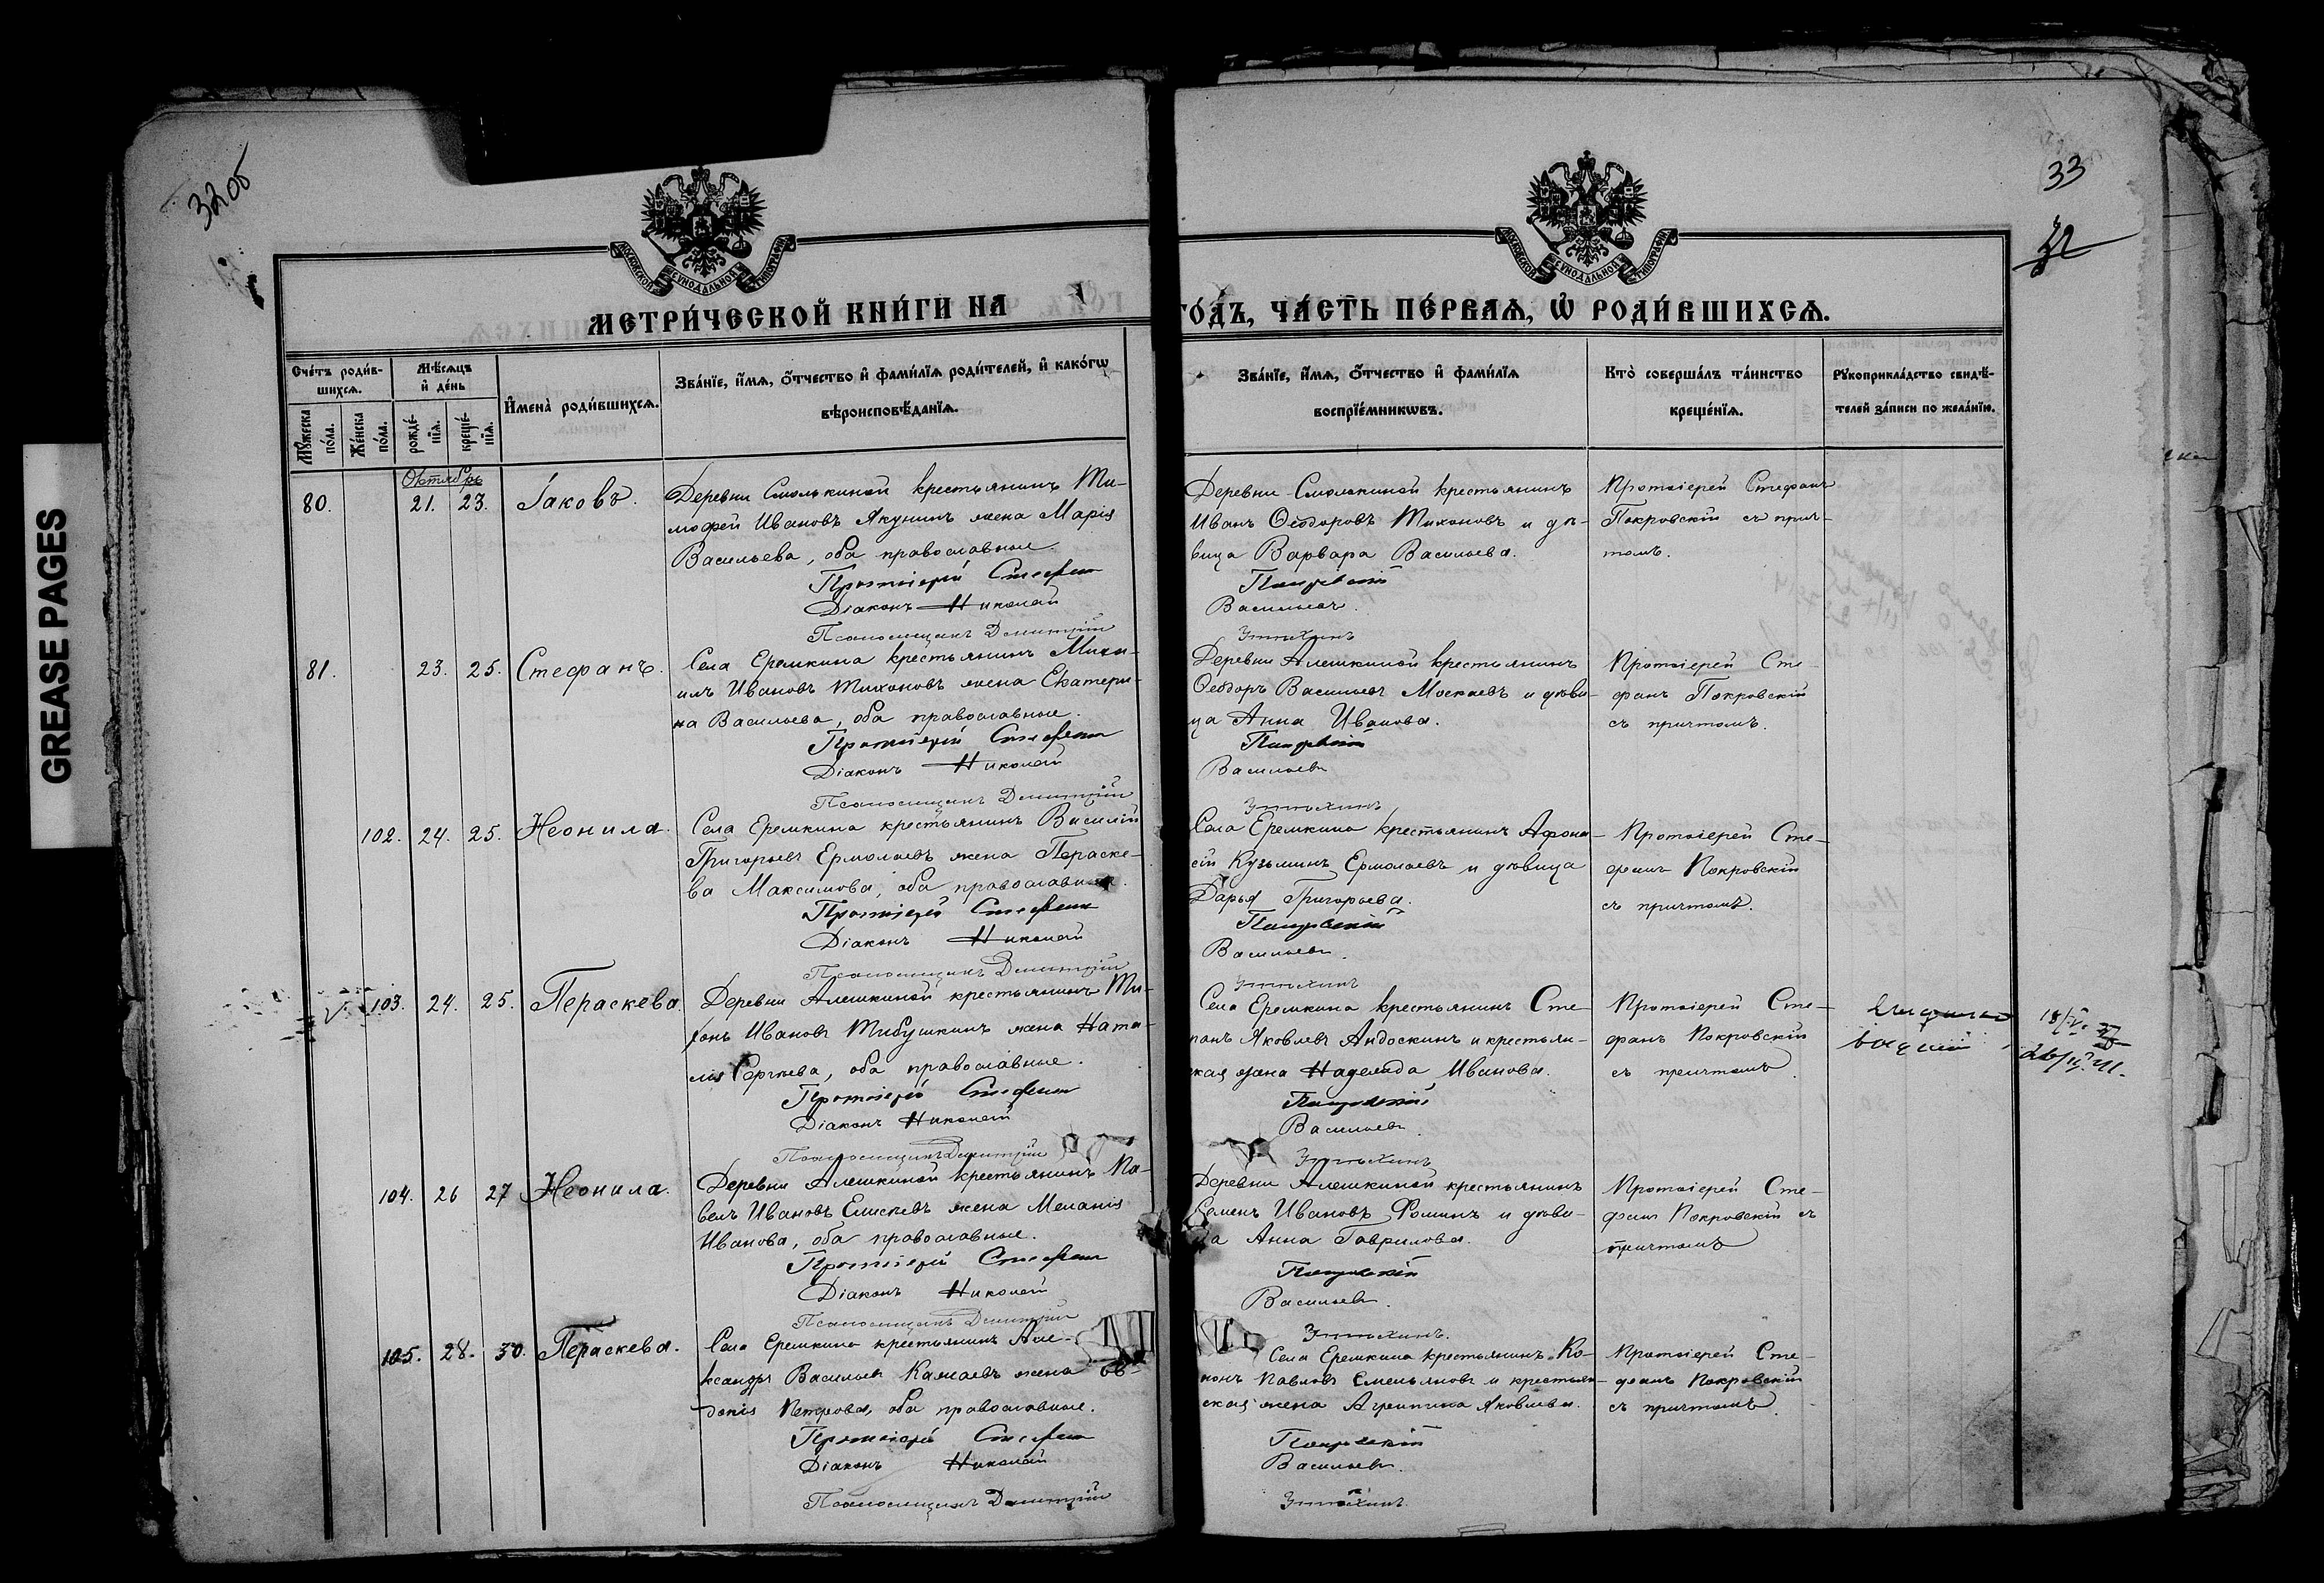 32 об
33
32
GREASE PAGES
МОСКОВСКОЙ СѴНОДАЛЬНОЙ ТИПОГРАФІИ
МОСКОВСКОЙ СѴНОДАЛЬНОЙ ТИПОГРАФІИ
МЕТРИ́ЧЕСКОЙ КНИ́ГИ НА
ГО́ДЪ, ЧА́СТЬ ПЕ́РВАѦ, Ѡ҆ РОДИ́ВШИХСѦ.
Сче́тъ роди́в-
шихсѧ.
Мѣ́сѧцъ
и҆ де́нь
И҆мена̀ роди́вшихсѧ.
Зва́нїе, и҆́мѧ, ѻ҆́тчество и҆ фами́лїѧ роди́телей, и҆ како́гѡ
вѣроисповѣ́данїѧ.
Мꙋ́жеска
по́ла.
Же́нска
по́ла.
рожде́-
нїѧ.
креще́-
нїѧ.
Зва́нїе, и҆́мѧ, ѻ҆́тчество и҆ фами́лїѧ
воспрїе́мникѡвъ.
Кто̀ соверша́лъ та́инство
креще́нїѧ.
Рꙋкоприкла́дство свидѣ́-
телей за́писи по жела́нїю.
Октябрь
80. 21. 23. Іаковъ.
Деревни Смолькиной крестьянинъ Ти-
мофей Ивановъ Якунинъ жена Марія
Васильева, оба православные.
Протоіерей Стефан
Діаконъ Николай
Псаломщикъ Димитрій
Деревни Смолькиной крестьянинъ
Иванъ Ѳеодоровъ Тихоновъ и дѣ-
вица Варвара Васильева.
Покровскій
Васильевъ.
Протоіерей Стефанъ
Покровскій съ прич-
томъ.
81. 23. 25. Стефанъ.
Села Еремкина крестьянинъ Миха-
илъ Ивановъ Тихоновъ жена Екатери-
на Васильева, оба православные.
Протоіерей Стефан
Діаконъ Николай
Псаломщикъ Димитрій
Деревни Алешкиной крестьянинъ
Ѳеодоръ Васильевъ Москаевъ и дѣви-
ца Анна Иванова.
Покровскій
Васильевъ
Протоіерей Сте-
фанъ Покровскій
съ причтомъ.
102. 24. 25. Неонила.
Села Еремкина крестьянинъ Василій
Григорьевъ Ермолаевъ жена Параске-
ва Максимова, оба православные.
Протоіерей Стефан
Діаконъ Николай
Псаломщикъ Димитрій
Села Еремкина крестьянинъ Афона-
сій Кузьминъ Ермолаевъ и дѣвица
Дарья Григорьева.
Покровскій
Васильевъ.
Протоіерей Сте-
фанъ Покровскій
съ причтомъ.
V 103. 24. 25. Пераскева.
Деревни Алешкиной крестьянинъ Ти-
хонъ Ивановъ Тибушкинъ жена Ната-
лія Сергѣева, оба православные.
Протоіерей Стефан
Діаконъ Николай
Псаломщикъ Димитрій
Села Еремкина крестьянинъ Сте-
панъ Яковлевъ Андоскинъ и крестьян-
ская жена Надежда Иванова.
Покровскій
Васильевъ.
Протоіерей Сте-
фанъ Покровскій
съ причтомъ.
104. 26 27 Неонила.
Деревни Алешкиной крестьянинъ Па-
велъ Ивановъ Елисѣевъ жена Меланія
Иванова, оба православные.
Протоіерей Стефан
Діаконъ Николай
Псаломщикъ Димитрій
Деревни Алешкиной крестьянинъ
Семенъ Ивановъ Фоминъ и дѣви-
ца Анна Гаврилова.
Покровскій
Васильевъ.
Протоіерей Сте-
фанъ Покровскій съ
причтомъ
105. 28. 30. Пераскева.
Села Еремкина крестьянинъ Але-
ксандръ Васильевъ Камаевъ жена Ев-
докія Петрова, оба православные.
Протоіерей Стефан
Діаконъ Николай
Псаломщикъ Димитрій
Села Еремкина крестьянинъ Ко-
нонъ Павловъ Емельяновъ и крестьян-
ская жена Агрипина Яковлева.
Покровскій
Васильевъ.
Протоіерей Сте-
фанъ Покровскій
съ причтомъ.